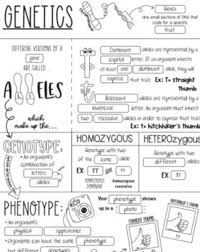 GENETICS
Genes
are small sections of DNA that
code for a specific
trait
DIFFERENT VERSIONS OF A
gene
ARE CALLED
ALLELES
which
make up the...
Dominant alleles are represented by a
capital letter. If an organism inherits
one dominant allele, they will
express that trait. Ex: T= straight
thumb
Recessive alleles are represented by a
lowercase letter. An organism must inherit
two recessive alleles in order to express that trait
Ex: t= hitchhiker's thumb
GENOTYPE:
• An organism's
combination of
letters
alleles
HOMOZYGOUS
Genotype with two
of the same allele
EX: TT or tt
homozygous
dominant
homozygous
recessive
HETEROzygous
Genotype with two
different alleles
EX: Tt
PHENOTYPE:
• An organism's
physical appearance
• Organisms can have the same phenotype
but different genotypes
Your phenotype shows
up in a photo